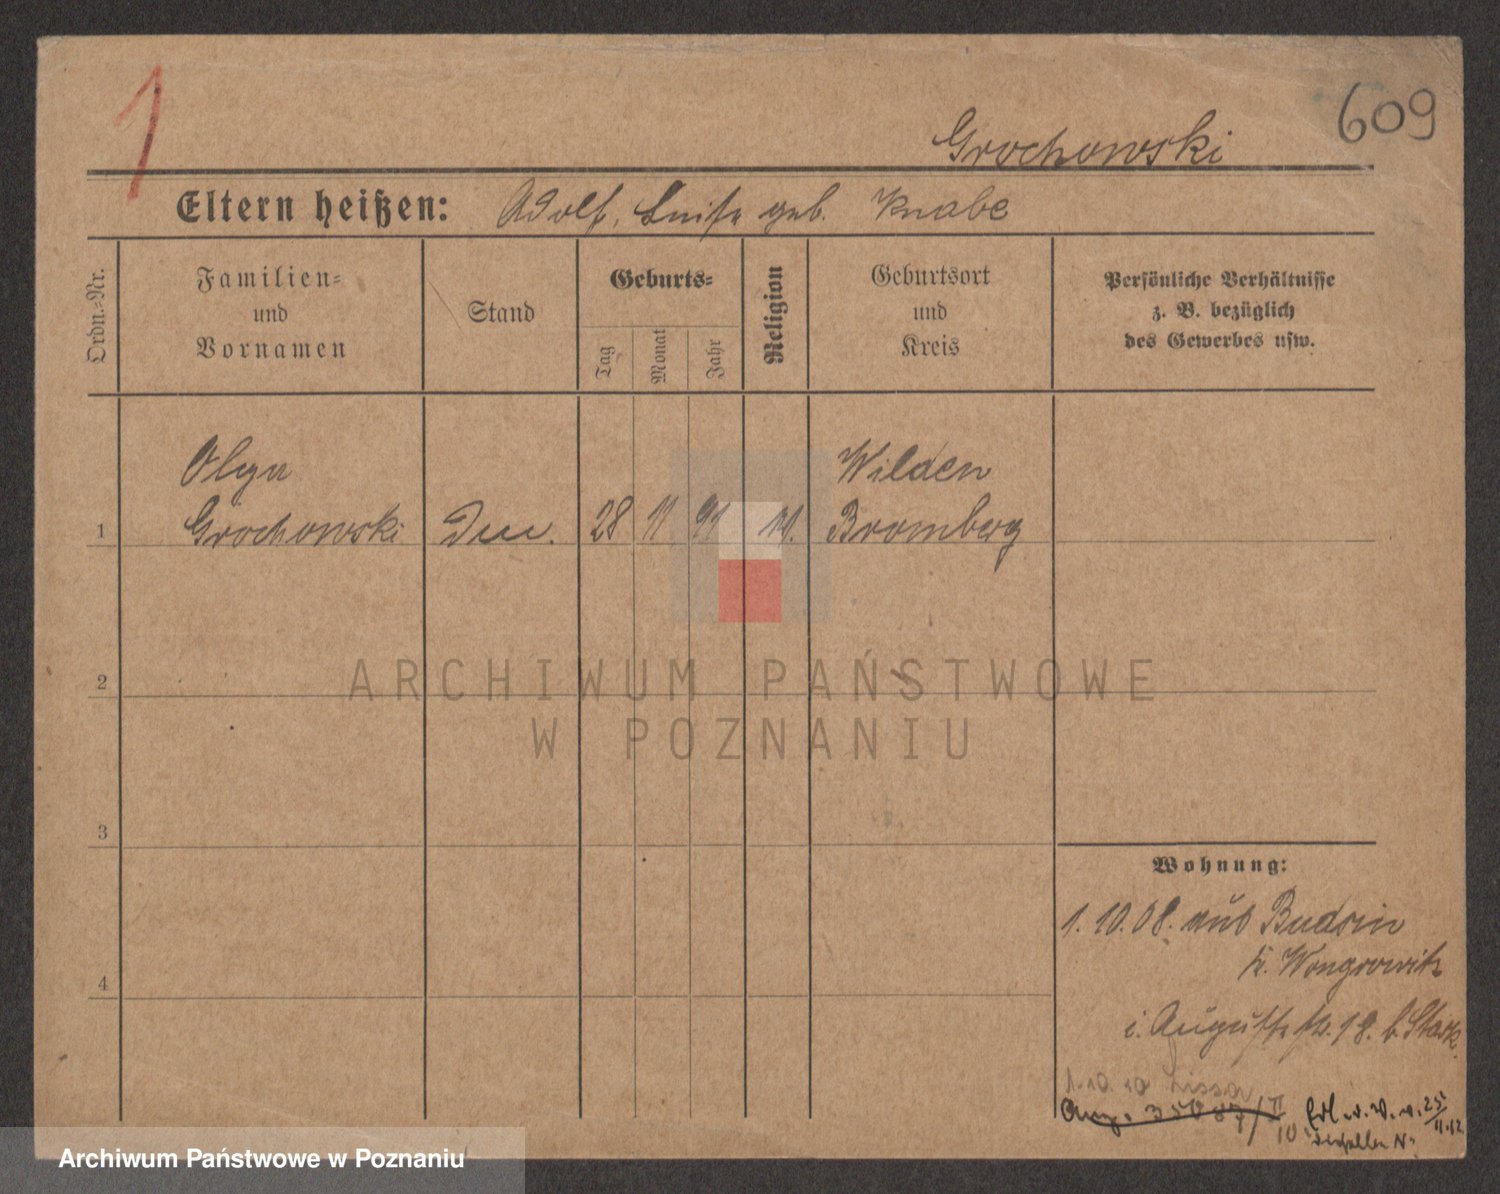 1
609
Grochowski
Eltern heißen: Adolf, Luise geb. Knabe
Ordn.=Nr.
Familien=
und
Vornamen
Stand
Geburts=
Tag
Monat
Jahr
Religion
Geburtsort
und
Kreis
Persönliche Verhältnisse
z. B. bezüglich
des Gewerbes usw.
Olga
Wilden
1 Grochowski 28 11 91 Bromberg
2
ARCHIWUM PAŃSTWOWE
W POZNANIU
3
Wohnung:
1.10.08. aus Budsin
4
Kr. Wongrowitz
i. Auguststr. 19. b. Stark.
1.10.10 Lissa
25/11.12
Archiwum Państwowe w Poznaniu